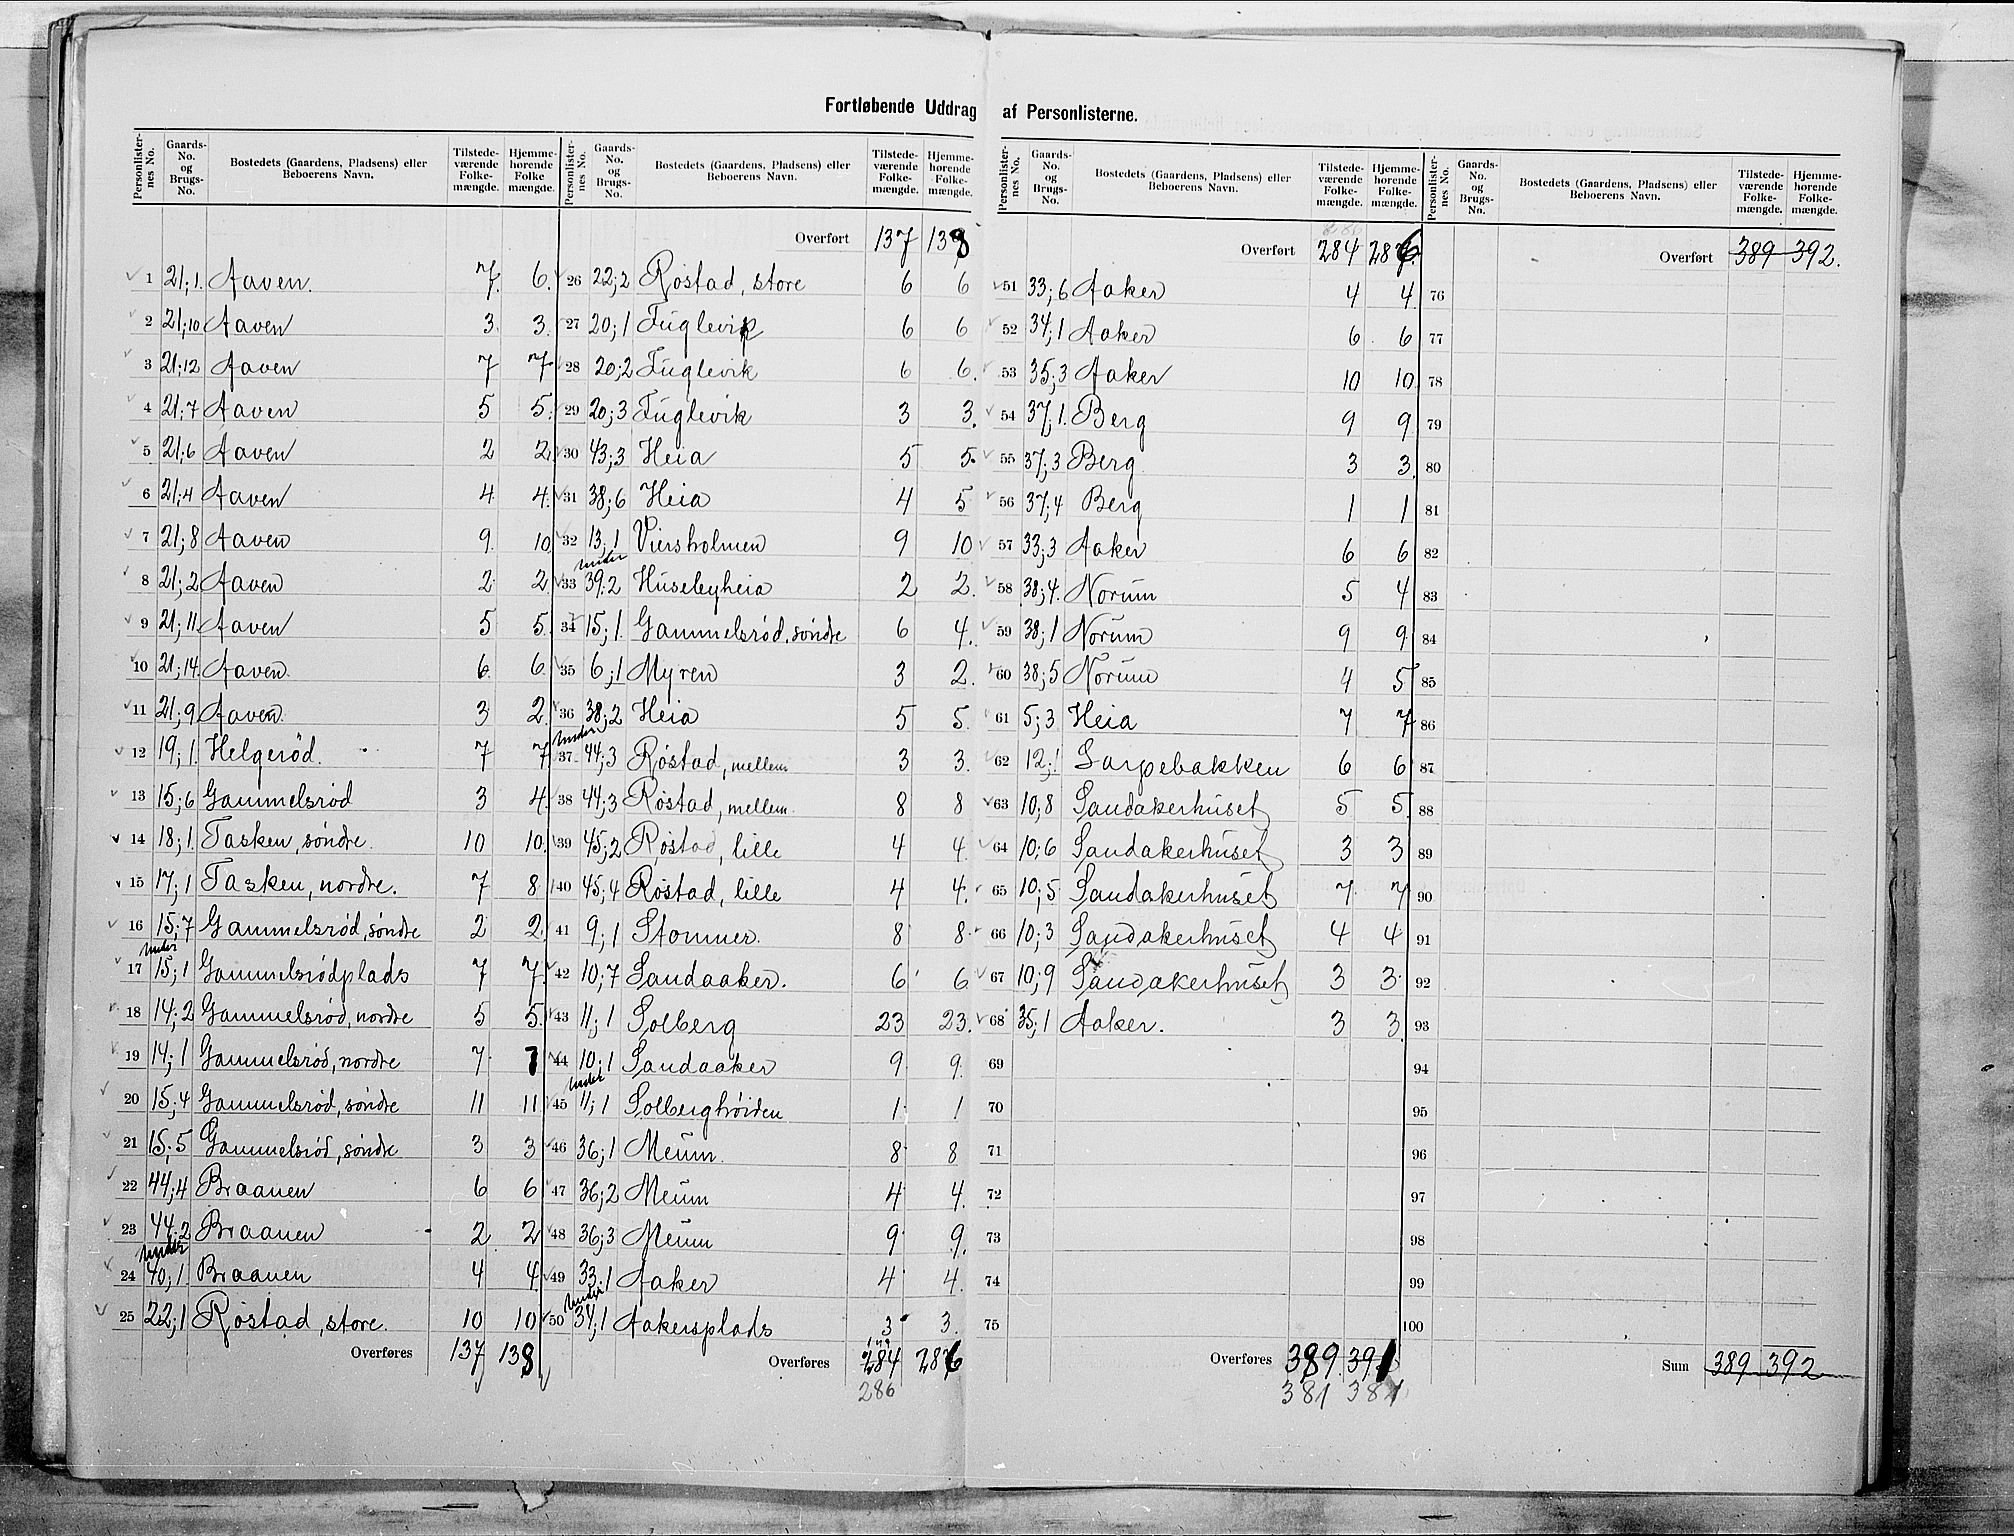 Fortløbende Uddrag af Personlisterne.
Personlister-nes No. Gaards-No. og Brugs-No. Bostedets (Gaardens, Pladsens) eller Beboerens Navn. Tilstede-værende Folke-mængde. Hjemme-hørende Folke mængde.
1 21;1. Aaven. 7. 6.
2 21;10 Aaven 3 3.
3 21;12 Aaven 7 7.
4 21;7 Aaven 5 5.
5 21;6 Aaven 2 2.
6 21;4 Aaven 4 4.
7 21;8 Aaven 9. 10.
8 21;2 Aaven 2 2
9 21;11. Aaven 5 5.
10 21;14. Aaven. 6. 6
11 21;9. Aaven. 3 2.
12 19;1. Helgerød. 7 7
13 15;6 Gammelsrød 3 4.
14 18;1. Tasken, søndre. 10 10.
15 17;1 Tasken, nordre. 7 8
16 15;7 Gammelsrød, søndre 2 2
17 under 15;1 Gammelsrødplads 7 7.
18 14;2 Gammelsrød, nordre 5 5.
19 14;1 Gammelsrød, nordre 7 7
20 15;4 Gammelsrød, søndre 11 11
21 15;5 Gammelsrød, søndre 3 3
22 44;4 Braanen 6 6
23 44;2 Braanen 2 2
24 under 40;1. Braanen 4 4.
25 22;1 Røstad, store. 10 10
Overføres 137 138
Personlister-nes No. Gaards-No. og Brugs-No. Bostedets (Gaardens, Pladsens) eller Beboerens Navn. Tilstede-værende Folke-mængde. Hjemme-hørende Folke-mængde.
Overført 137 138
26 22;2 Røstad, store 6 6
27 20;1 Fuglevik 6 6
28 20;2 Fuglevik 6 6.
29 20;3 Fuglevik 3 3.
30 43;3 Heia 5 5.
31 38;6 Heia 4 5
32 13;1 Viersholmen 9 10
33 under 39;2 Husebyheia 2 2.
34 15;1. Gammelsrød, søndre 6 4.
35 6;1 Myren 3 2.
36 38;2 Heia 5 5.
37 under 44;3 Røstad, mellem 3 3.
38 44;3 Røstad, mellem. 8 8
39 45;2 Røstad, lille 4 4.
40 45;4 Røstad, lille 4 4.
41 9;1 Stomner. 8 8.
42 10;7 Sandaaker. 6 6
43 11;1 Solberg 23 23.
44 10;1 Sandaaker 9 9.
45 under 11;1 Solberghøiden 1 1
46 36;1 Meum. 8 8
47 36;2 Meum 4 4.
48 36;3 Meum 9 9.
49 33;1 Aaker 4 4.
50 under 34;1 Aakersplads 3 3.
Overføres 284 286
286
Personlister-nes No. Gaards-No. og Brugs-No. Bostedets (Gaardens, Pladsens) eller Beboerens Navn. Tilstede-værende Folke-mængde. Hjemme-hørende Folke-mængde.
286
Overført 284 286
51 33;6 Aaker 4 4.
52 34;1 Aaker 6 6
53 35;3 Aaker 10 10.
54 37;1. Berg 9 9
55 37;3 Berg 3 3.
56 37;4 Berg 1 1
57 33;3 Aaker 6 6
58 38;4. Norum 5 4
59 38;1 Norum 9 9.
60 38;5 Norum 4 5
61 5;3 Heia 7 7
62 12;1 Sarpebakken 6 6
63 10;8 Sandakerhuset 5 5.
64 10;6 Sandakerhuset 3 3
65 10;5 Sandakerhuset 7 7
66 10;3 Sandakerhuset 4 4
67 10;9 Sandakerhuset 3 3
68 35;1 Aaker. 3 3
69
70
71
72
73
74
75
Overføres 389. 391
381 387
Personlister-nes No. Gaards-No. og Brugs-No. Bostedets (Gaardens, Pladsens) eller Beboerens Navn. Tilstede-værende Folke-mængde. Hjemme-hørende Folke-mængde.
Overført 389 392.
76
77
78
79
80
81
82
83
84
85
86
87
88
89
90
91
92
93
94
95
96
97
98
99
100
Sum 389 392